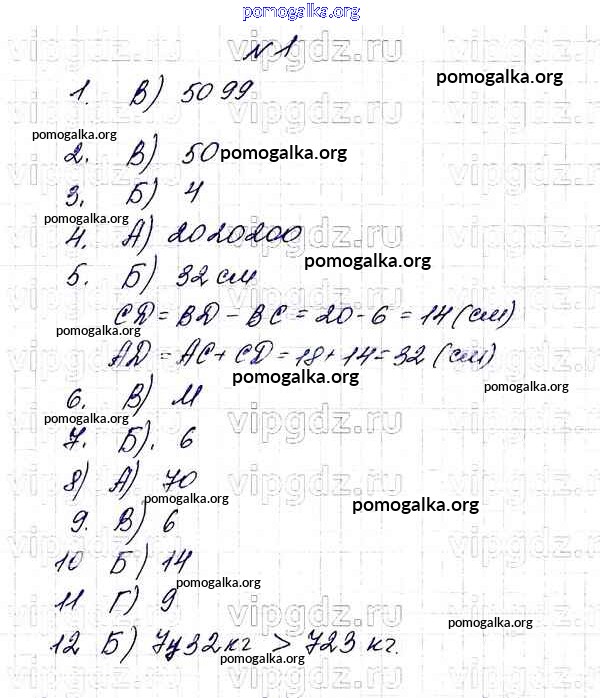 pomogalka.org
№ 1
pomogalka.org
1. В) 5099
pomogalka.org
2. В) 50 pomogalka.org
3. Б) 4
pomogalka.org
4. А) 2020200
pomogalka.org
5. Б) 32 см
CD = BD - BC = 20 - 6 = 14 (см)
pomogalka.org
AD = AC + CD = 18 + 14 = 32 (см)
pomogalka.org
pomogalka.org
6. В) М
pomogalka.org
7. Б). 6
vipgdz.ru
8) А) 70
pomogalka.org
pomogalka.org
9. В) 6
vipgdz.ru
10 Б) 14
pomogalka.org
11 Г) 9
vipgdz.ru
pomogalka.org
12 Б) 7ц 32 кг > 723 кг.
pomogalka.org